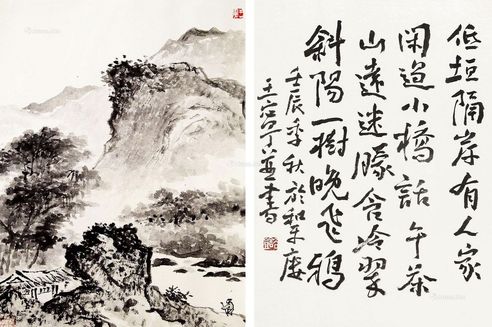 低垣隔岸有人家
閑過小橋話午茶
山遠迷朦含冷翠
斜陽一樹晚飛鴉
壬辰季秋於和平廔